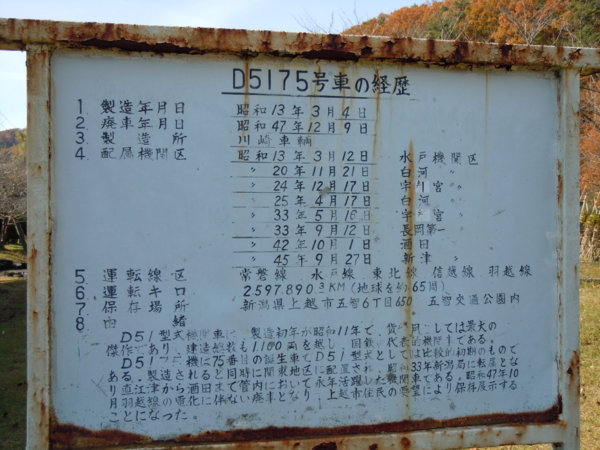 D5175号車の経歴
1 製造年月日 昭和13年3月4日
2 廃車年月日 昭和47年12月9日
3 製造所 川崎車輌
4 配属機関区 昭和13年3月12日 水戸機関区
〃 20年11月21日 白河 〃
〃 24年12月17日 宇都宮 〃
〃 25年4月17日 白河 〃
〃 33年5月16日 宇都宮 〃
〃 33年9月12日 長岡第一
〃 42年10月1日 酒田 〃
〃 45年9月27日 新津 〃
5 運転線区 常磐線 水戸線 東北線 信越線 羽越線
6 運転キロ 2597.890.3KM(地球を約65周)
7 保存場所 新潟県上越市五智6丁目650 五智交通公園内
8 由緒
D51型式機関車は 製造初年が昭和11年で、貨物用としては最大の
傑作であり、建造総数も1100両を越し 国鉄の代表的機関車である。
D5175号機は75番目の誕生車でD51型式としては比較的初期のもので
ある。製造されると同時に関東地区に配置され、昭和33年新潟局に転属とな
り直江津から酒田まで管内において永年活躍した機関車である。昭和47年10
月羽越線の電化に伴ない廃車となり、上越市住民の要望により保存展示する
ことになった。